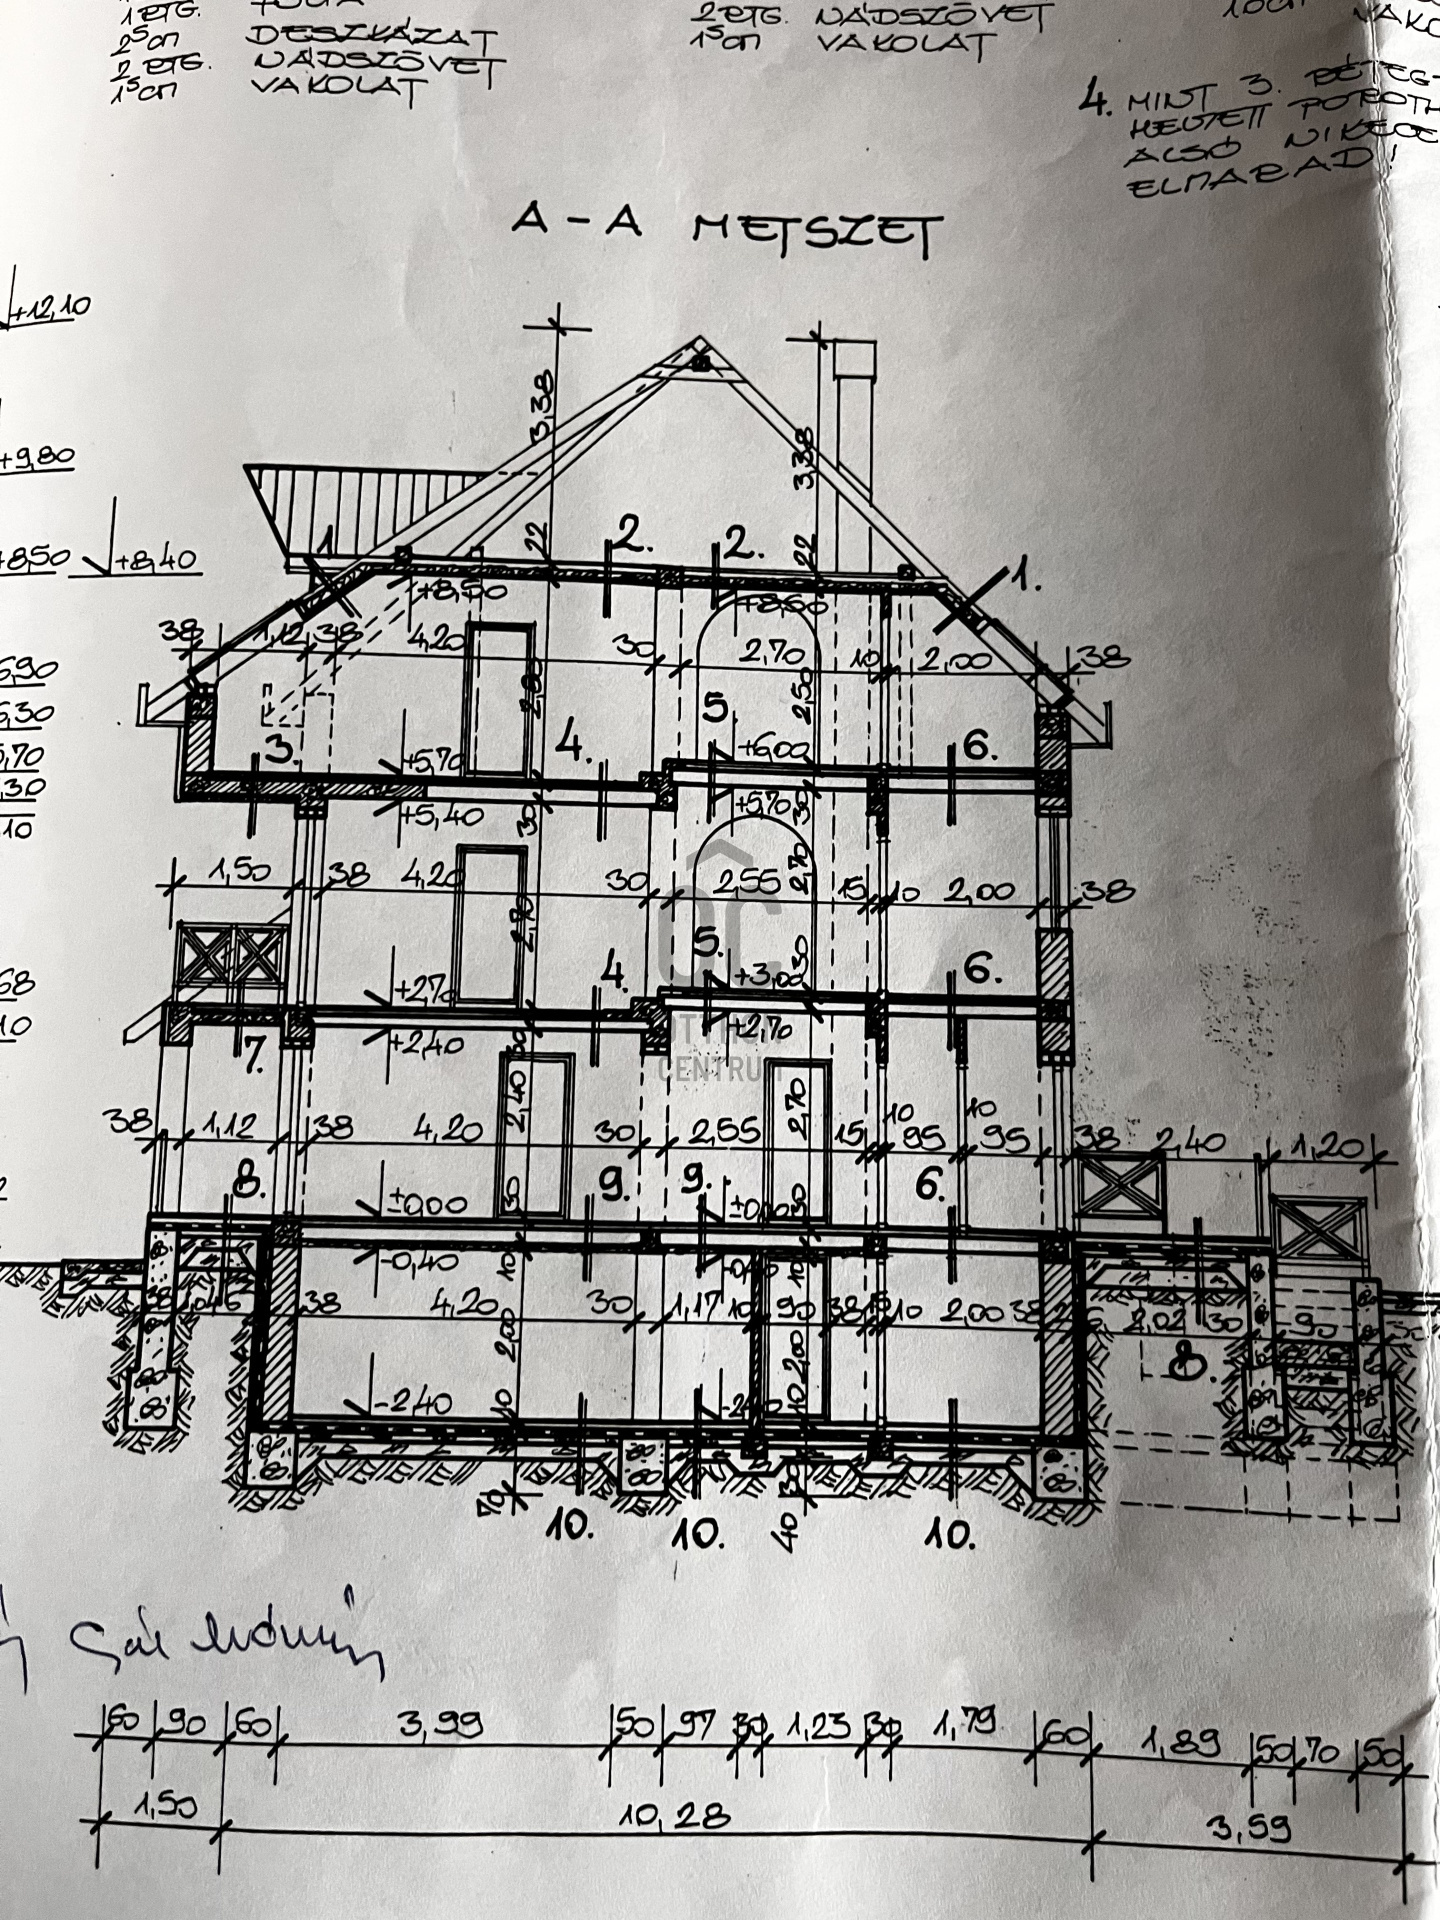 1 RTG. FÓLIA
2⁵cm DESZKÁZAT
2 RTG. NÁDSZÖVET
1⁵cm VAKOLAT
2 RTG. NÁDSZÖVET
1⁵cm VAKOLAT
4. MINT 3. RÉTEG-
ALSÓ
ELMARAD!
A - A METSZET
+12,10
+9,80
+8,50 +8,40
3,38 3,38
22 22
1. 2. 2. 1.
+8,50 +8,50
38 1,12 38 4,20 30 2,70 10 2,00 38
2,80 2,50
3. 4. 5. 6.
+5,70 +6,00
+5,40 +5,70
30 30
6,90
5,30
5,70
,30
,10
1,50 38 4,20 30 2,55 15 10 2,00 38
2,70 2,70
4. 5. 6.
+2,70 +3,00
30
+2,40 +2,70
30
68
10
OTTHON
CENTRUM
7.
2,40 2,70
38 1,12 38 4,20 30 2,55 15 10 95 10 95 38 2,40 1,20
8. 9. 9. 6.
±0,00 ±0,00
30 30
-0,40
10 10
38 4,20 30 1,17 10 90 38 15 10 2,00 38 2,02 30 90
2,00 2,00
8.
-2,40
10 10
70 30
40
10. 10. 10.
60 90 60 3,99 50 97 30 1,23 30 1,79 60 1,89 50 70 50
1,50 10,28 3,59